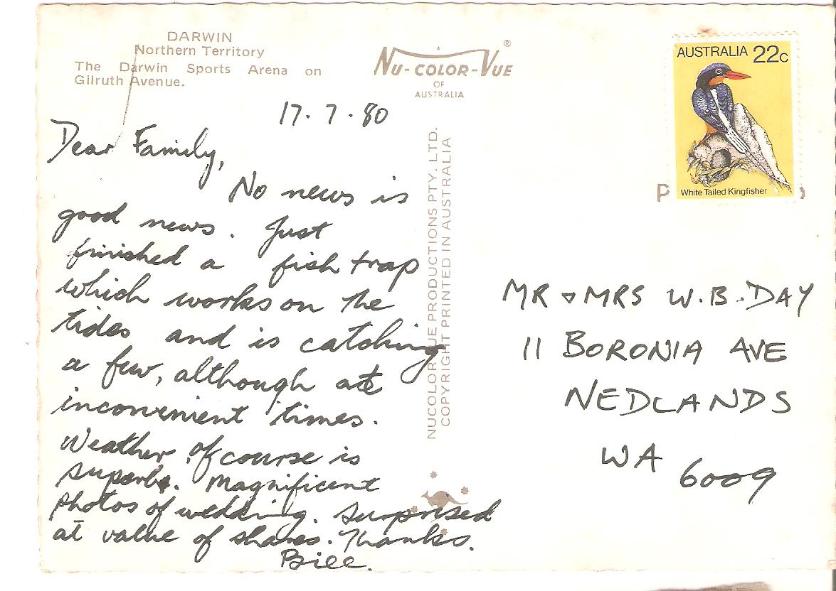 DARWIN
Northern Territory
The Darwin Sports Arena on
Gilruth Avenue.
NU-COLOR-VUE
®
OF
AUSTRALIA
17.7.80
Dear Family,
No news is
good news. Just
finished a fish trap
which works on the
tides and is catching
a few, although at
inconvenient times.
Weather of course is
superb. Magnificent
Photos of wedding. Surprised
at value of shares. Thanks.
Bill.
NUCOLORVUE PRODUCTIONS PTY. LTD.
COPYRIGHT PRINTED IN AUSTRALIA
AUSTRALIA 22c
White Tailed Kingfisher
P
MR & MRS W.B. DAY
11 BORONIA AVE
NEDLANDS
WA 6009